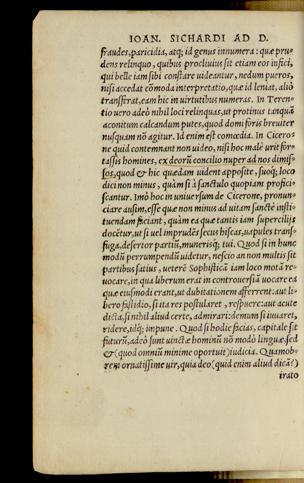 IOAN. SICHARDI AD D.
fraudes, paricidia, atq; id genus innumera: quæ pru-
dens relinquo, quibus procliuius sit etiam eos infici,
qui belle iam sibi constare uideantur, nedum pueros,
nisi accedat cõmoda interpretatio, quæ id leniat, aliò
transferat, eam hic in uirtutibus numeras. In Teren-
tio uero adeò nihil loci relinquas, ut protinus tanquã
aconitum calcandum putes, quod domi foris breuiter
nusquam nõ agitur. Id enim est comœdia. In Cicero-
ne quid contemnant non uideo, nisi hoc malè urit for-
tasses homines, ex deorũ concilio nuper ad nos dimis-
sos, quod & hic quædam uident apposite, suoq; loco
dici non minus, quàm si à sanctulo quopiam profici-
scantur. Imò hoc in uniuersum de Cicerone, pronun-
ciare ausim, esse quæ non minus ad uitam sanctè insti-
tuendam faciant, quàm ea quæ tantis iam supercilijs
docẽtur, ut si uel imprudẽs secus hiscas, uapules trans-
fuga, desertor partiũ, munerisq; tui. Quod si in hunc
modũ perrumpendũ uidetur, nescio an non multis sit
partibus satius, ueterẽ Sophisticã iam loco motã re-
uocare, in qua liberum erat in controuersiã uocare ea
quæ eiusmodi erant, ut dubitationem afferrent: aut li-
bero fastidio, si ita res postularet, respuere: aut acutè
dicta, si nihil aliud certe, admirari: demum si iuuaret,
ridere, idq; impune. Quod si hodie facias, capitale sit
futurũ, adeò sunt uinctæ hominũ nõ modò linguæ, sed
& (quod omniũ minime oportuit) iudicia. Quamob-
rem ornatissime uir, quia deo (quid enim aliud dicã?)
irato